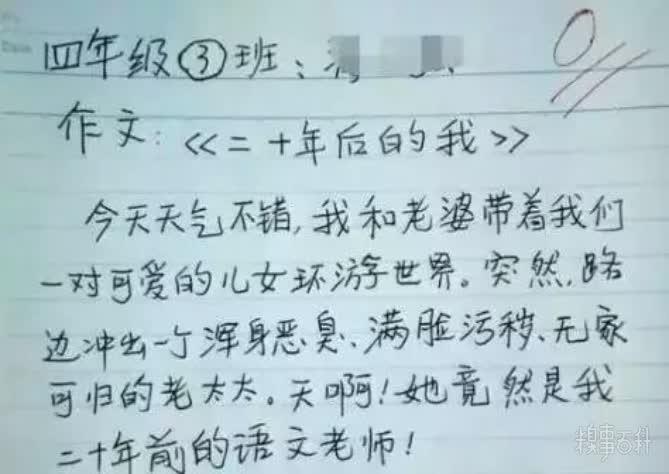 四年级③班:
0
作文:《二十年后的我》
今天天气不错,我和老婆带着我们
一对可爱的儿女环游世界。突然,路
边冲出一个浑身恶臭、满脸污秽、无家
可归的老太太。天啊!她竟然是我
二十年前的语文老师!
糗事百科